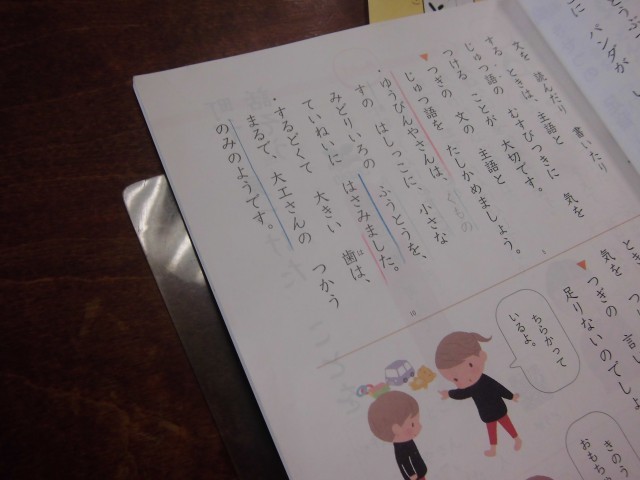 パンダが
文を 読んだり 書いたり
する ときは、主語と
じゅつ語の むすびつきに 気を
つける ことが 大切です。
▼つぎの 文の 主語と
じゅつ語を たしかめましょう。
・ゆうびんやさんは、くもの
すの はしっこに、小さな
みどりいろの ふうとうを、
ていねいに はさみました。
・するどくて 大きい 歯は、
まるで、大工さんの つかう
のみのようです。
は
5
10
気を
▼つぎの
足りないのでしょ
ちらかって
いるよ。
きのう
おもち